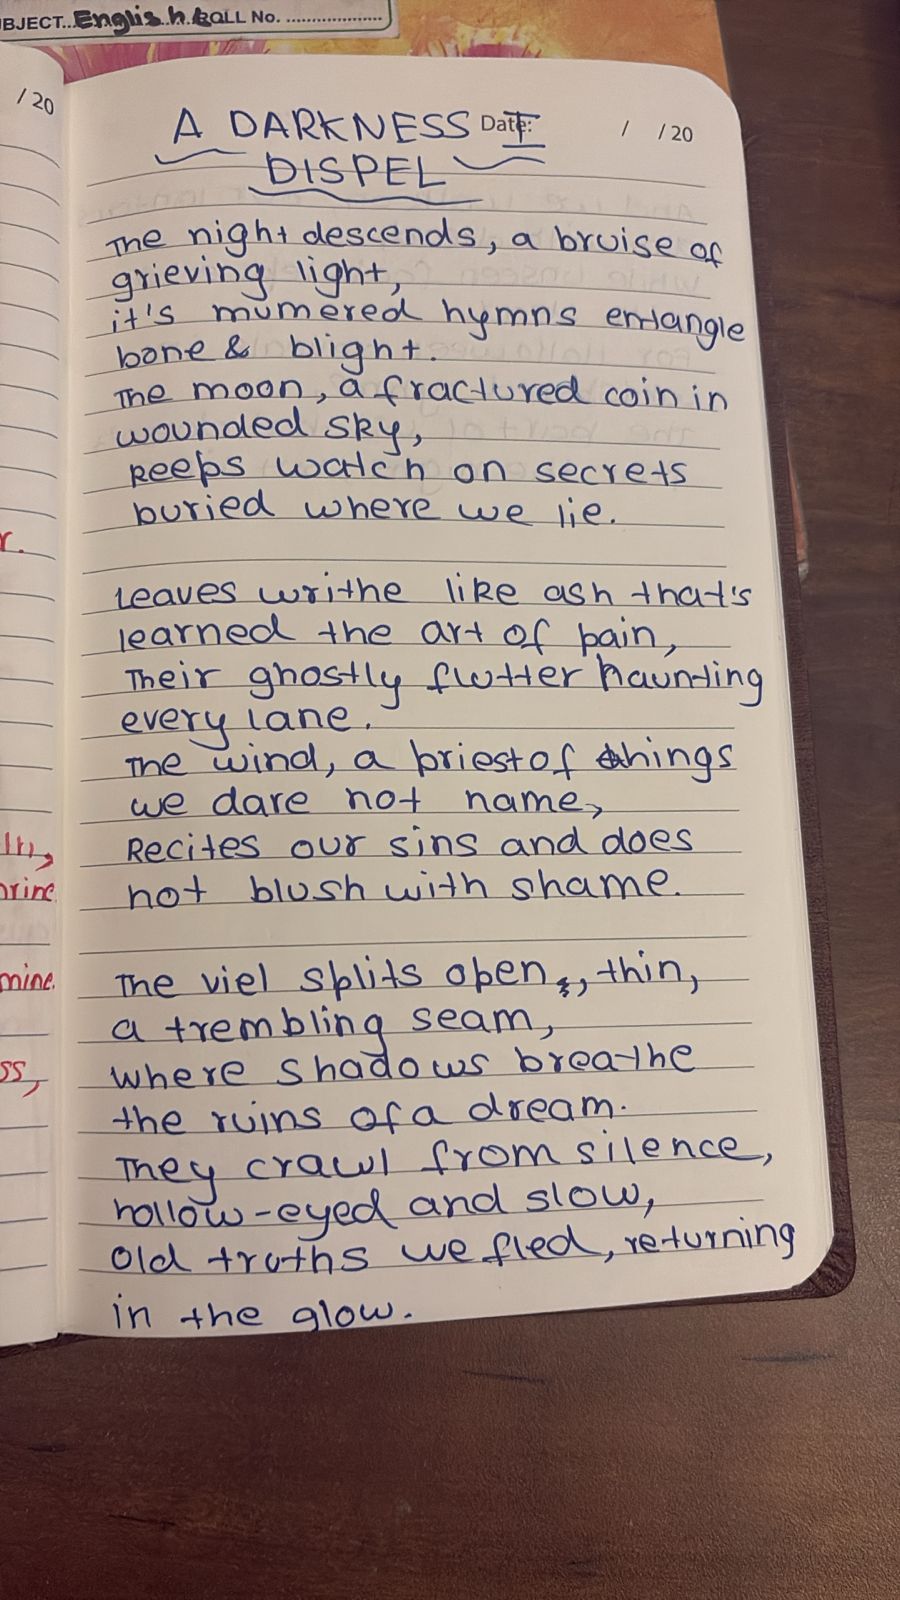 BJECT... English. ROLL No. ....................
/ 20
A DARKNESS I
Date: / / 20
DISPEL
The night descends, a bruise of
grieving light,
it's mumered hymns entangle
bone & blight.
The moon, a fractured coin in
wounded sky,
Keeps watch on secrets
buried where we lie.
Leaves writhe like ash that's
learned the art of pain,
Their ghostly flutter haunting
every lane.
The wind, a priest of things
we dare not name,
Recites our sins and does
not blush with shame.
The viel splits open, thin,
a trembling seam,
where shadows breathe
the ruins of a dream.
They crawl from silence,
hollow-eyed and slow,
old truths we fled, returning
in the glow.
r.
mine.
ss,